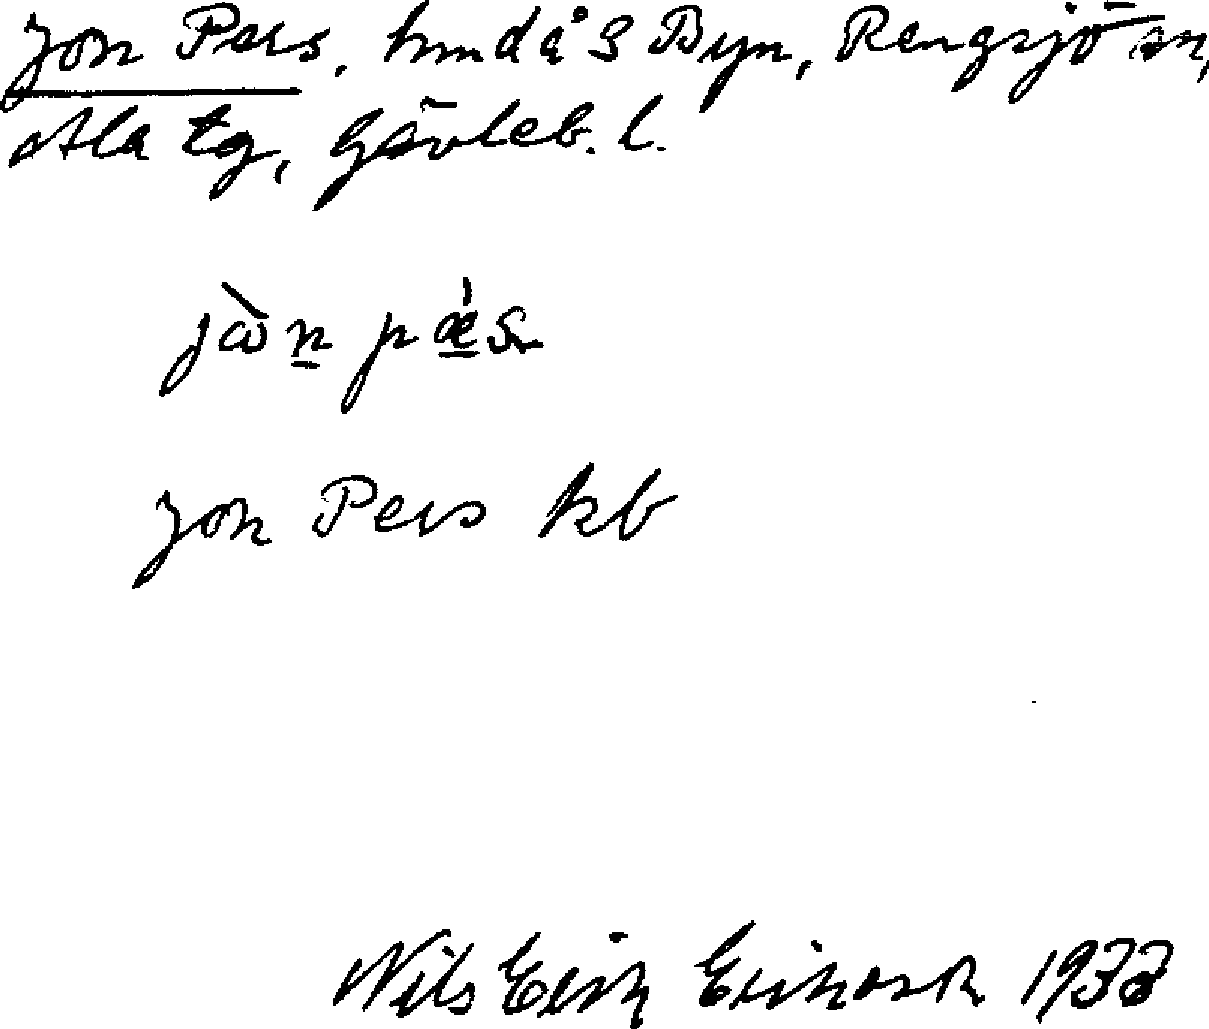 Jon Pers, hmd å s Byn, Rengsjö sn,
Ala tg, Gävleb. l.
jὼn pǽs
Jon Pers kb
Nils Erik Erikson 1933